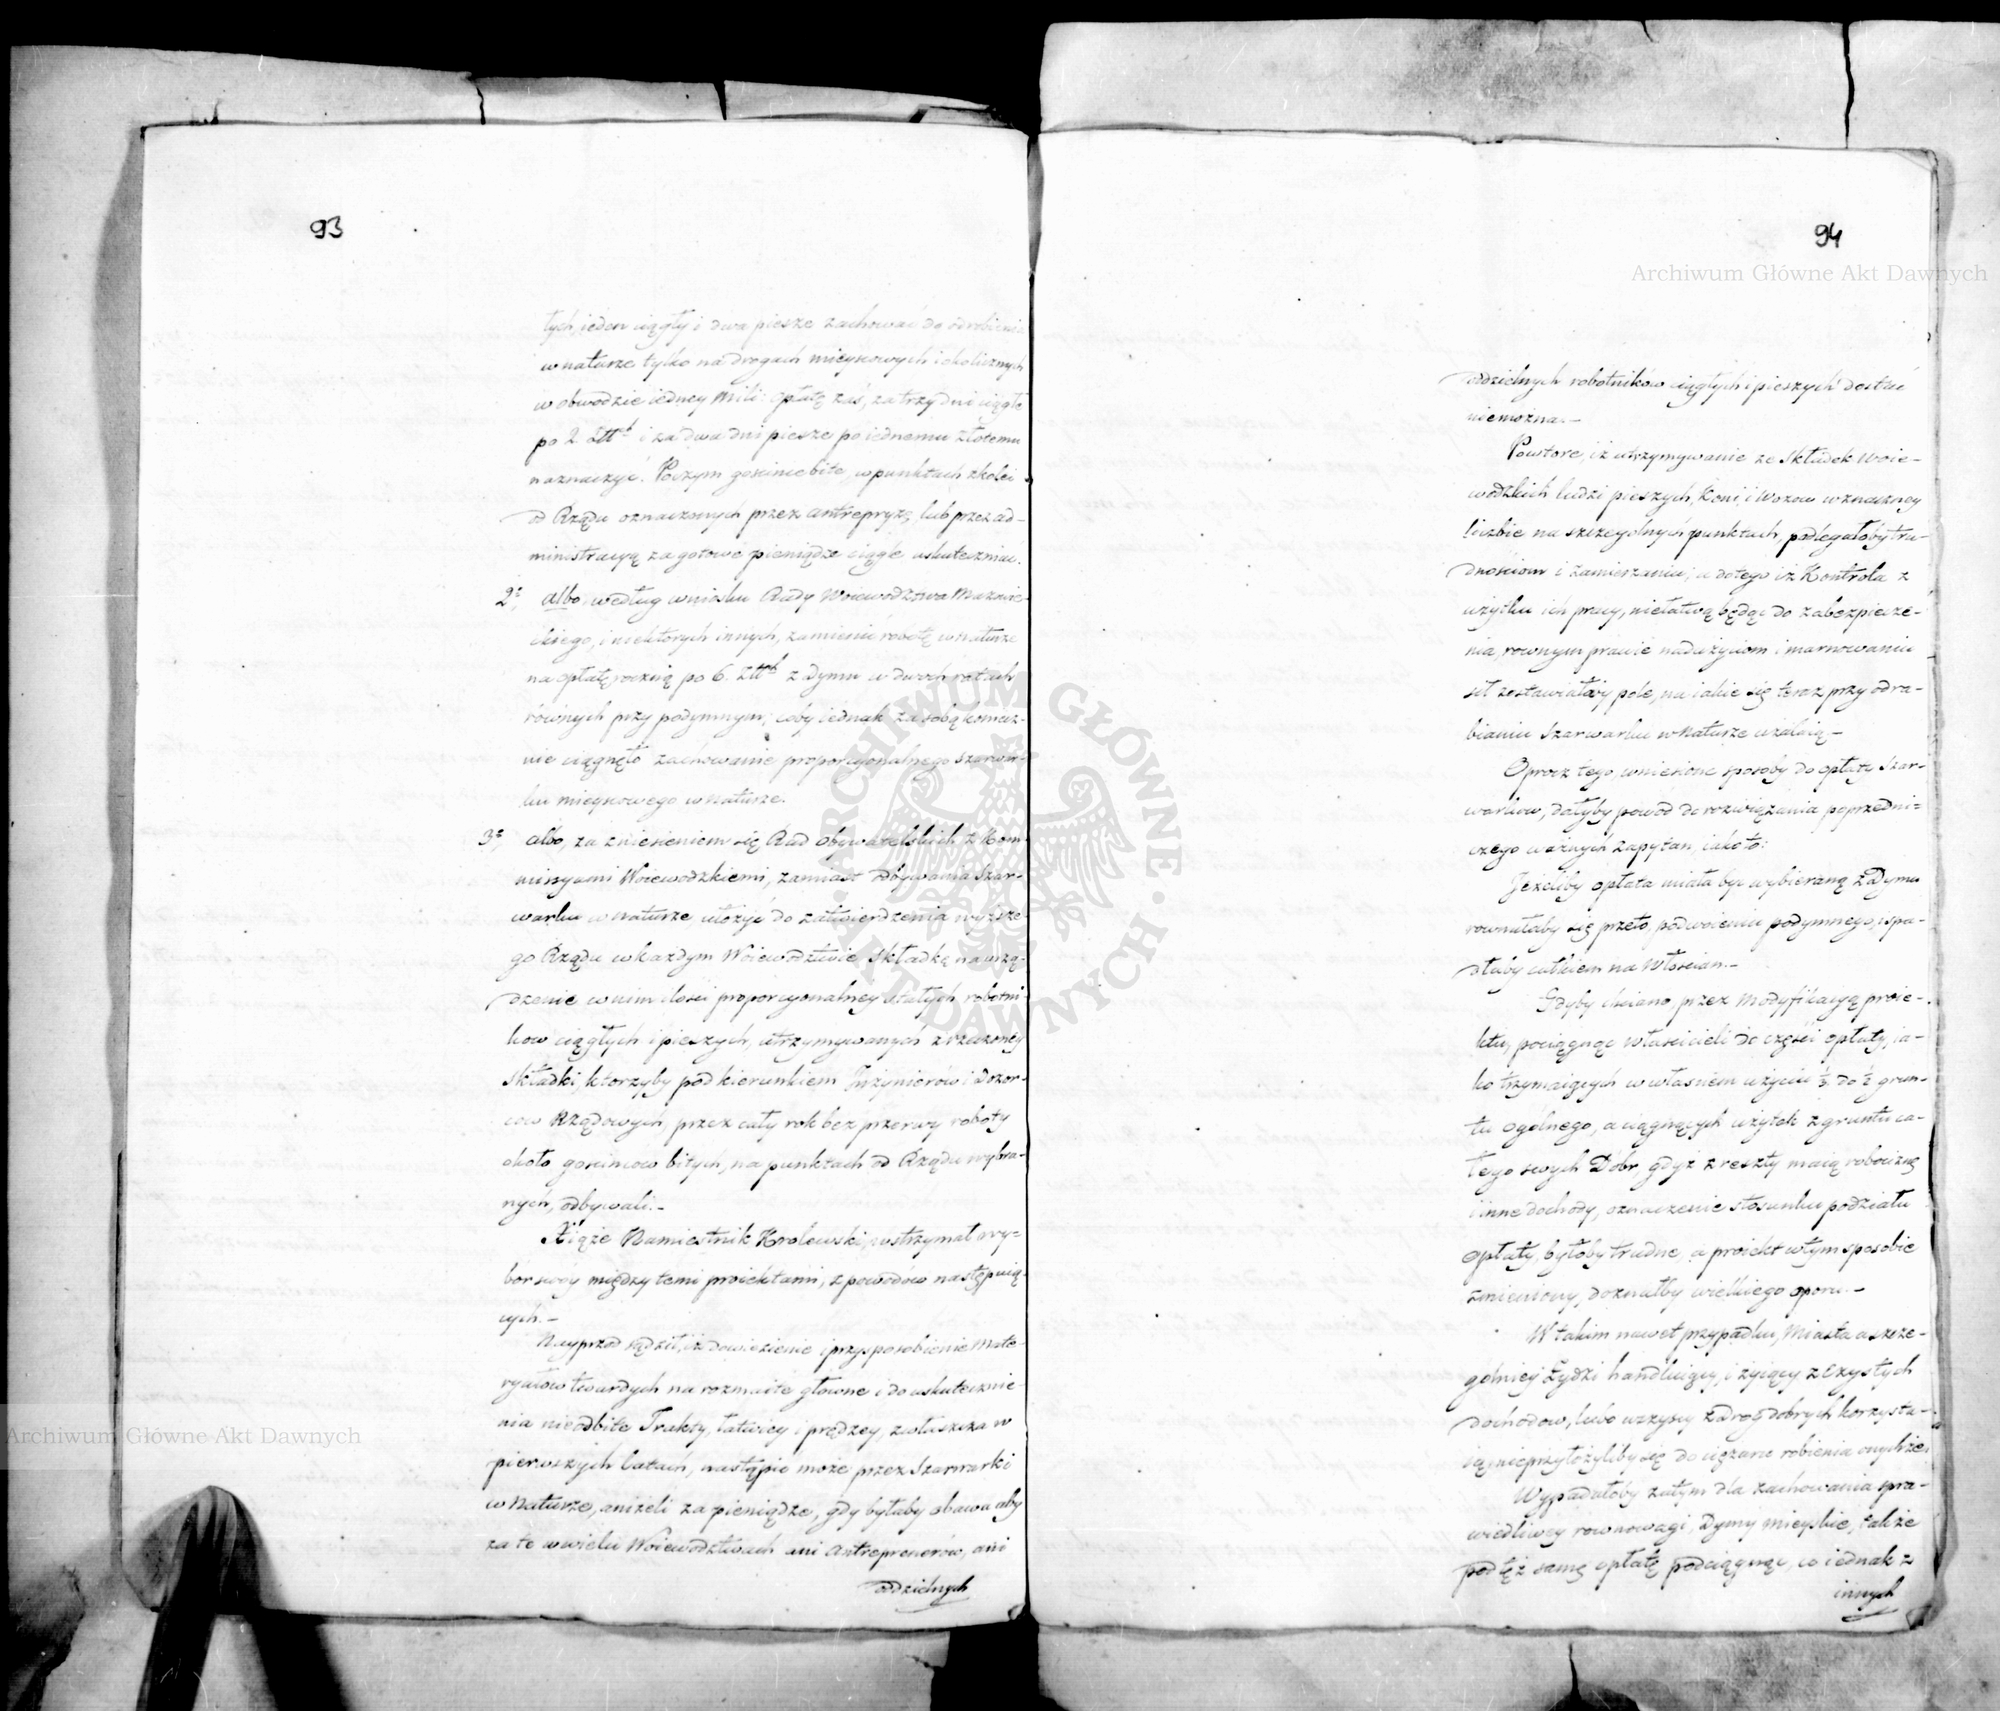 93
tych, ieden ciągły i dwa piesze zachować do odrobienia
w naturze tylko na drogach mieyscowych i okolicznych
w obwodzie iedney Mili: opłatę zaś, za trzy dni ciągłe
po 2. i za dwa dni piesze po iednemu złotemu
naznaczyć. Poczym gościńce bite, w punktach zkolei
od Rządu oznaczonych przez antrepryzę, lub przez ad-
ministracyą za gotowe pieniądze ciągle uskuteczniać.
2° albo, według wniosku Rady Woiewodztwa Mazowie-
ckiego, i niektorych innych, zamienić robotę w naturze
na opłatę roczną po 6. z Dymu w dwoch ratach
równych przy podymnym; coby iednak za sobą koniecz-
nie ciągnęło zachowanie proporcyonalnego szarwar-
ku mieyscowego w naturze.
3° albo, za zniesieniem się Rad Obywatelskich z Kom-
missyami Woiewodzkiemi, zamiast odbywania Szar-
warku w naturze, ułożyć do zatwierdzenia wyższe-
go Rządu w każdym Woiewodztwie składkę na urzą-
dzenie w nim ilości proporcyonalney stałych robotni-
kow ciągłych i pieszych, utrzymywanych z rzeczoney
składki, ktorzyby pod kierunkiem Inżynierów i Dozor-
cow Rządowych, przez cały rok bez przerwy roboty
około gościńcow bitych, na punktach od Rządu wybra-
nych, odbywali.-
Xiąże Namiestnik Krolewski, wstrzymał wy-
bor swóy między temi proiektami, z powodów następuią-
cych.-
Nayprzod sądził, iż dowiezienie i przysposobienie Mate-
ryałow twardych na rozmaite główne i do uskutecznie-
nia nieodbite Trakty, łatwiey i prędzey, zwłaszcza w
pierwszych latach, nastąpić może przez Szarwarki
w Naturze, aniżeli za pieniądze, gdy byłaby obawa aby
za te w wielu Woiewodztwach ani Antreprenerów, ani
oddzielnych
94
oddzielnych robotników ciągłych i pieszych dostać
niemożna.-
Powtore, iż utrzymywanie ze składek Woie-
wodzkich ludzi pieszych, Koni, i Wozow w znaczney
liczbie na szczegolnych punktach, podlegałoby tru-
dnościom i zamieszaniu; a do tego iż Kontrola z
użytku ich pracy, niełatwą będąc do zabezpiecze-
nia, rownym prawie nadużyciom i marnowaniu
sił zostawiałaby pole, na iakie się teraz przy odra-
bianiu Szarwarku w Naturze użalaią.-
Oprocz tego, wniesione sposoby do opłaty Szar-
warkow, dałyby powód do rozwiązania poprzedni-
czego ważnych zapytań, iako to:
Jeżeliby opłata miała być wybieraną z Dymu
rownałaby się przeto, podwoieniu podymnego, i spa-
dłaby całkiem na Włościan.-
Gdyby chciano, przez Modyfikacyą proie-
ktu, pociągnąć właścicieli do części opłaty, ia-
ko trzymaiących w własnem użyciu ⅓ do ½ grun-
tu ogolnego, a ciągnących użytek z gruntu ca-
łego swych Dobr, gdyż z reszty maią robociznę
i inne dochody, oznaczenie stosunku podziału
opłaty, byłoby trudne, a proiekt w tym sposobie
zmieniony, doznałby wielkiego oporu.-
W takim nawet przypadku, Miasta a szcze-
golniey Żydzi handluiący, i żyiący z Czystych
dochodow, lubo wszyscy z Drog dobrych korzysta-
ią, nieprzyłożyliby się do ciężaru robienia onychże.
Wypadałoby zatym dla zachowania spra-
wiedliwey rownowagi, Dymy mieyskie, także
pod tęż samę opłatę podciągnąć, co iednak z
innych
Archiwum Główne Akt Dawnych
Archiwum Główne Akt Dawnych
ARCHIWUM GŁÓWNE AKT DAWNYCH